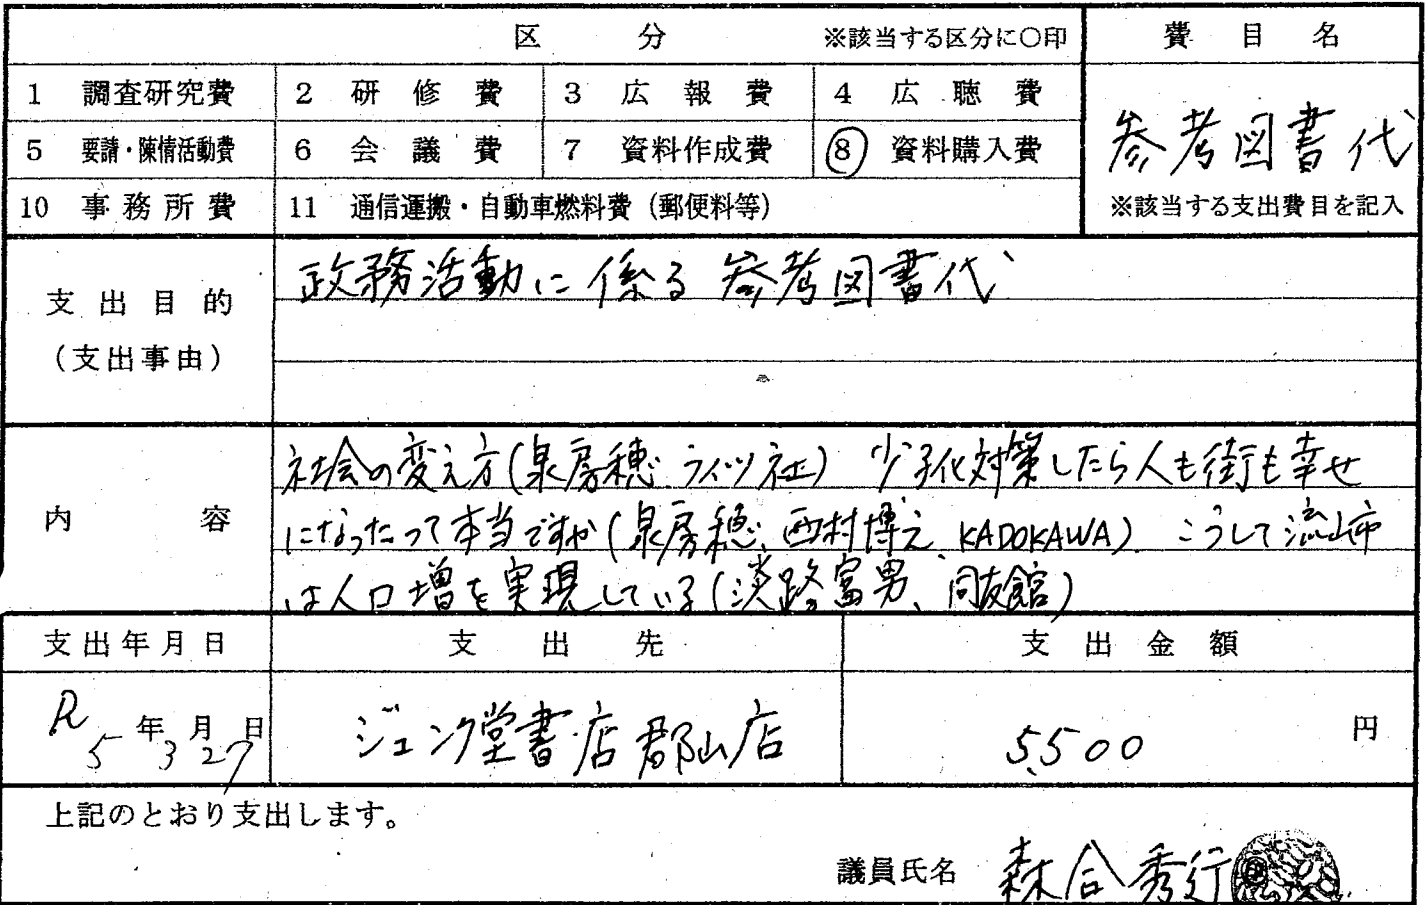 区 分 ※該当する区分に○印 費 目 名
1 調査研究費 2 研 修 費 3 広 報 費 4 広 聴 費
5 要請・陳情活動費 6 会 議 費 7 資料作成費 8 資料購入費
参考図書代
10 事 務 所 費 11 通信運搬・自動車燃料費（郵便料等）
※該当する支出費目を記入
支 出 目 的
（支出事由）
政務活動に係る参考図書代
内 容
社会の変え方(泉房穂、ライツ社) 少子化対策したら人も街も幸せ
になったって本当ですか(泉房穂、西村博之、KADOKAWA)、こうして流山市
は人口増を実現している(淡路富男、同友館)
支出年月日 支 出 先 支 出 金 額
R5年3月27日 ジュンク堂書店郡山店 5,500 円
上記のとおり支出します。
議員氏名 森合秀行